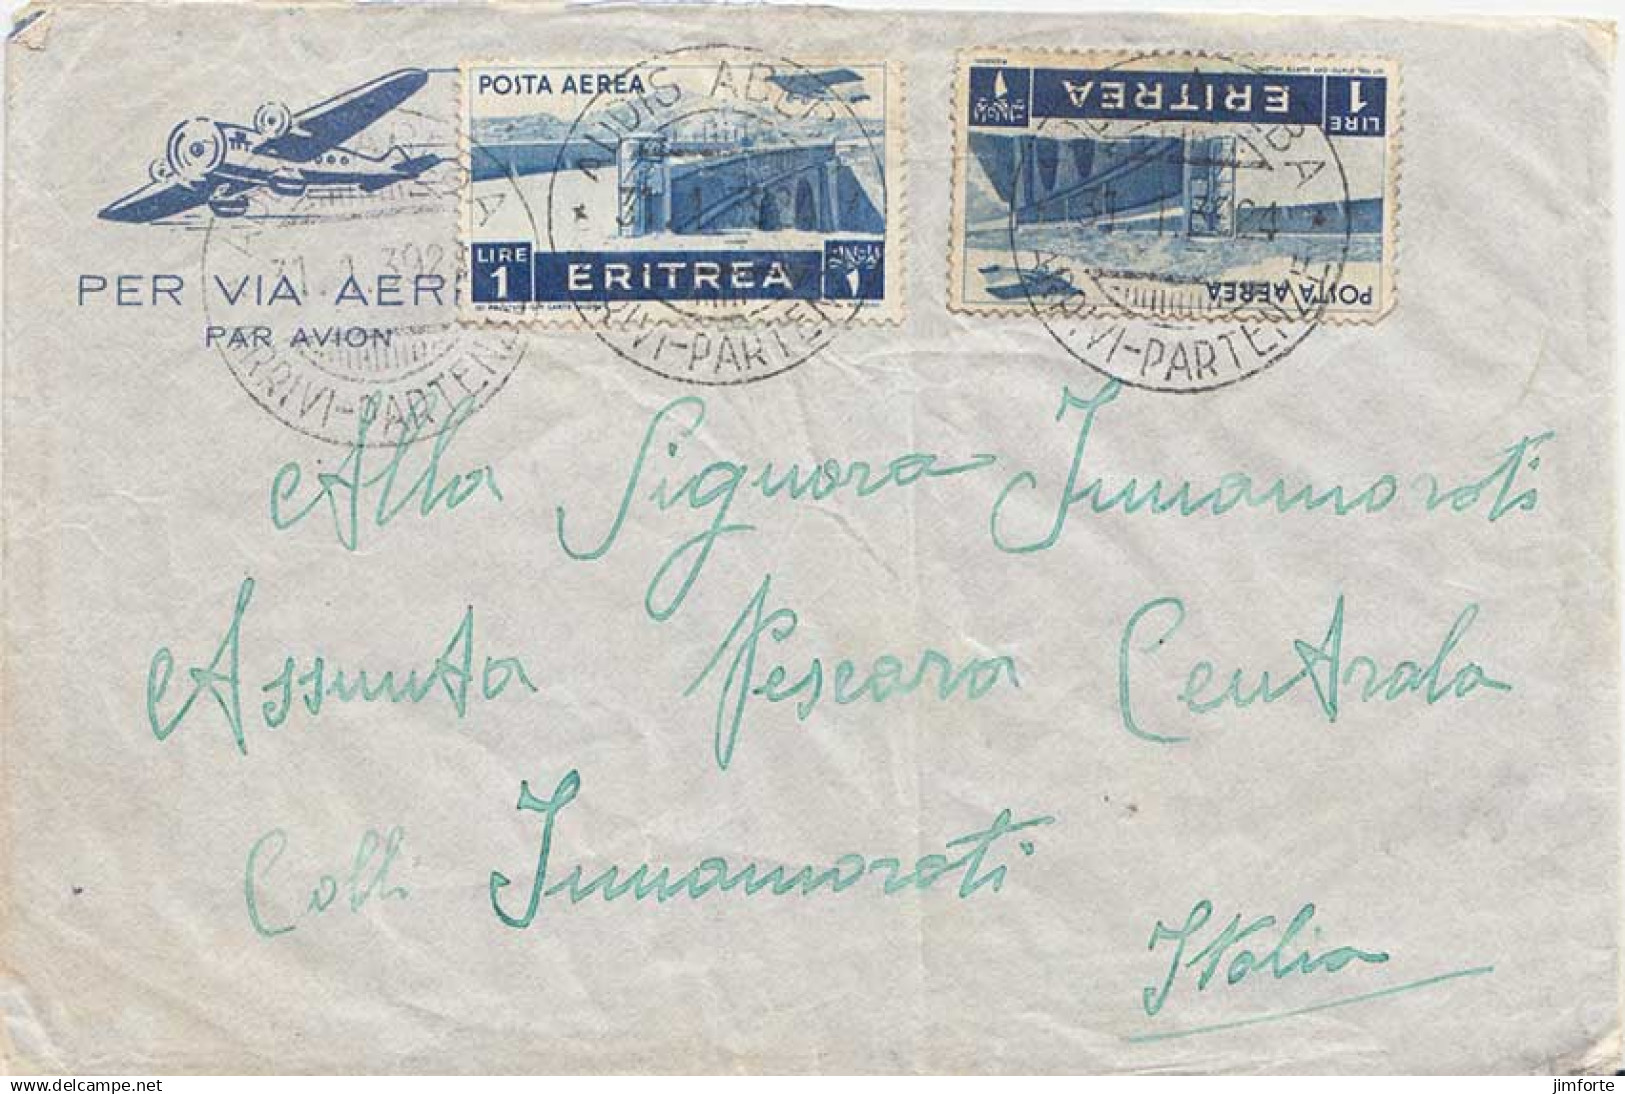 POSTA AEREA
LIRE 1 ERITREA
LIRE 1 ERITREA
POSTA AEREA
PER VIA AERE
PAR AVION
ADDIS ABEBA
31.1.39 24
ARRIVI-PARTENZE
Alla Signora Innamorati
Assunta Pescara Centrala
Colli Innamorati
Italia
www.delcampe.net
jimforte